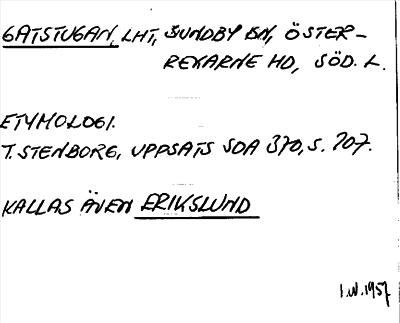 GATSTUGAN, LHT, SUNDBY SN, ÖSTER-
REKARNE HD, SÖD. L.
ETYMOLOGI.
T. STENBORG, UPPSATS SOA 370, S. 707.
KALLAS ÄVEN ERIKSLUND
I.W. 1957